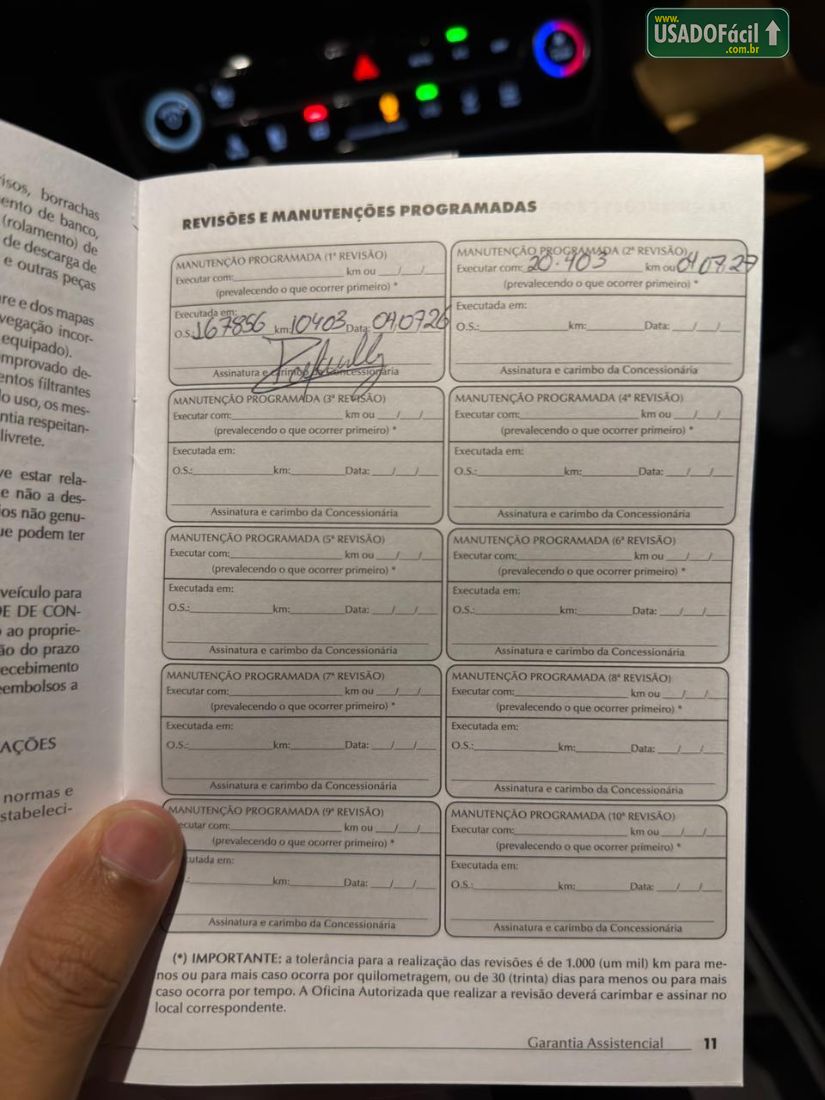 www.
USADOFácil
.com.br
risos, borrachas
ento de banco,
(rolamento) de
de descarga de
e outras peças
are e dos mapas
vegação incor-
equipado).
mprovado de-
entos filtrantes
lo uso, os mes-
ntia respeitan-
livrete.
ve estar rela-
e não a des-
ios não genu-
ue podem ter
veículo para
DE DE CON-
o ao proprie-
ão do prazo
recebimento
eembolsos a
AÇÕES
normas e
stabeleci-
REVISÕES E MANUTENÇÕES PROGRAMADAS
MANUTENÇÃO PROGRAMADA (1ª REVISÃO)
Executar com:__________ km ou __/__/__
(prevalecendo o que ocorrer primeiro) *
Executada em:
O.S.: 167856 km: 10403 Data: 04/07/26
Assinatura e carimbo da Concessionária
MANUTENÇÃO PROGRAMADA (2ª REVISÃO)
Executar com: 20.403 km ou 04/07/27
(prevalecendo o que ocorrer primeiro) *
Executada em:
O.S.:__________ km:__________ Data: __/__/__
Assinatura e carimbo da Concessionária
MANUTENÇÃO PROGRAMADA (3ª REVISÃO)
Executar com:__________ km ou __/__/__
(prevalecendo o que ocorrer primeiro) *
Executada em:
O.S.:__________ km:__________ Data: __/__/__
Assinatura e carimbo da Concessionária
MANUTENÇÃO PROGRAMADA (4ª REVISÃO)
Executar com:__________ km ou __/__/__
(prevalecendo o que ocorrer primeiro) *
Executada em:
O.S.:__________ km:__________ Data: __/__/__
Assinatura e carimbo da Concessionária
MANUTENÇÃO PROGRAMADA (5ª REVISÃO)
Executar com:__________ km ou __/__/__
(prevalecendo o que ocorrer primeiro) *
Executada em:
O.S.:__________ km:__________ Data: __/__/__
Assinatura e carimbo da Concessionária
MANUTENÇÃO PROGRAMADA (6ª REVISÃO)
Executar com:__________ km ou __/__/__
(prevalecendo o que ocorrer primeiro) *
Executada em:
O.S.:__________ km:__________ Data: __/__/__
Assinatura e carimbo da Concessionária
MANUTENÇÃO PROGRAMADA (7ª REVISÃO)
Executar com:__________ km ou __/__/__
(prevalecendo o que ocorrer primeiro) *
Executada em:
O.S.:__________ km:__________ Data: __/__/__
Assinatura e carimbo da Concessionária
MANUTENÇÃO PROGRAMADA (8ª REVISÃO)
Executar com:__________ km ou __/__/__
(prevalecendo o que ocorrer primeiro) *
Executada em:
O.S.:__________ km:__________ Data: __/__/__
Assinatura e carimbo da Concessionária
MANUTENÇÃO PROGRAMADA (9ª REVISÃO)
ecutar com:__________ km ou __/__/__
(prevalecendo o que ocorrer primeiro) *
cutada em:
.:__________ km:__________ Data: __/__/__
Assinatura e carimbo da Concessionária
MANUTENÇÃO PROGRAMADA (10ª REVISÃO)
Executar com:__________ km ou __/__/__
(prevalecendo o que ocorrer primeiro) *
Executada em:
O.S.:__________ km:__________ Data: __/__/__
Assinatura e carimbo da Concessionária
(*) IMPORTANTE: a tolerância para a realização das revisões é de 1.000 (um mil) km para me-
nos ou para mais caso ocorra por quilometragem, ou de 30 (trinta) dias para menos ou para mais
caso ocorra por tempo. A Oficina Autorizada que realizar a revisão deverá carimbar e assinar no
local correspondente.
Garantia Assistencial 11